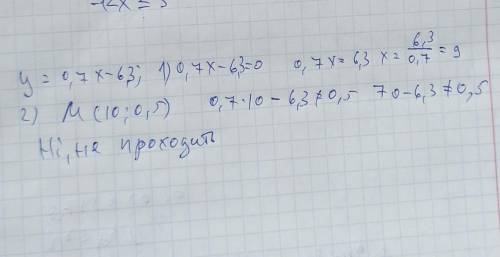 -12x = 3
y = 0,7x-6,3; 1) 0,7x-6,3=0 0,7x=6,3 x= 6,3/0,7 = 9
2) M(10;0,5) 0,7·10-6,3≠0,5 70-6,3≠0,5
Ні, не проходить